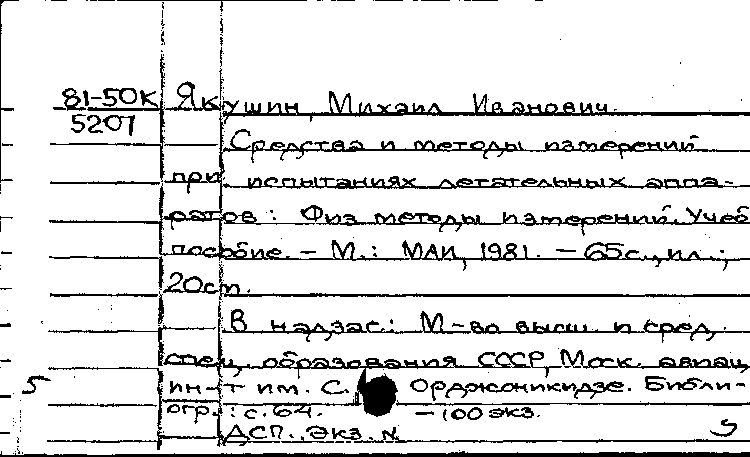 81-50К Якушин, Михаил Иванович.
5207
Средства и методы измерений
при испытаниях летательных аппа-
ратов: Физ методы измерений. Учеб
пособие. – М.: МАИ, 1981. – 65с., ил.;
20см.
В надзаг.: М-во высш. и сред.
спец. образования СССР, Моск. авиац
5 ин-т им. С. Орджоникидзе. Библи-
огр.: с. 64. – 100 экз.
ДСП. Экз. N